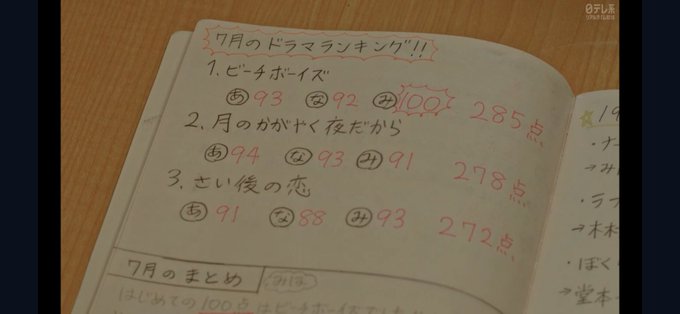 日テレ系
7月のドラマランキング!!
1. ビーチボーイズ
あ 93 な 92 み 100 285点
2. 月のかがやく夜だから
あ 94 な 93 み 91 278点
3. さい後の恋
あ 91 な 88 み 93 272点
7月のまとめ みほ
はじめての100点はビーチボーイズでした!!
☆19
・ナ
→み
・ラブ
→木村
・ぼく
→堂本